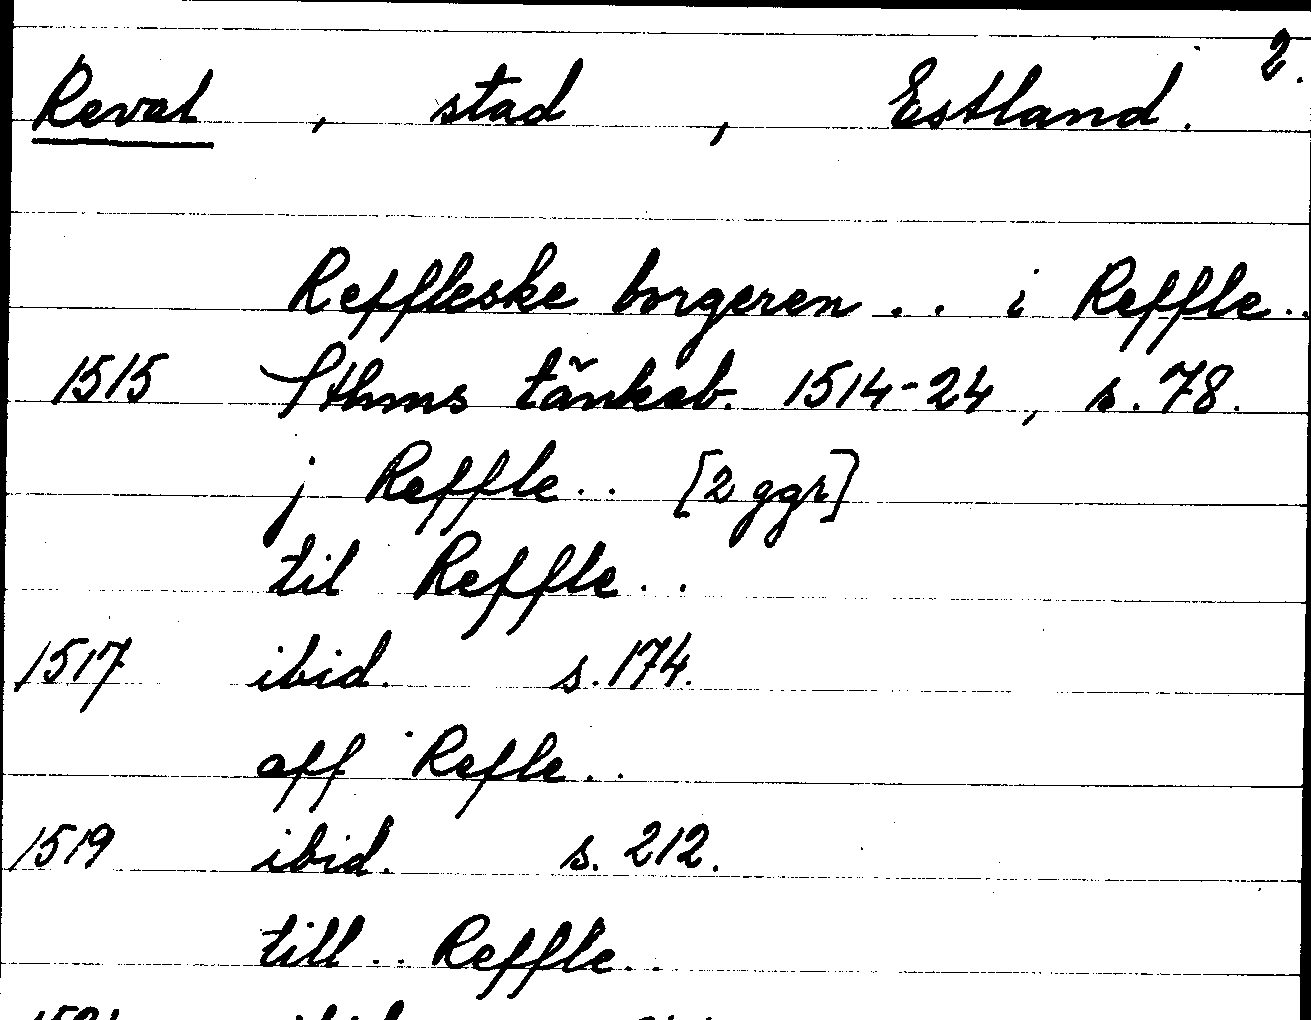 2.
Reval , stad , Estland.
Reffleske borgeren . . i Reffle . .
1515 Sthms tänkeb. 1514-24, s. 78.
j Reffle . . [2 ggr]
til Reffle . .
1517 ibid. s. 174.
aff Refle . .
1519 ibid. s. 212.
till . . Reffle . .